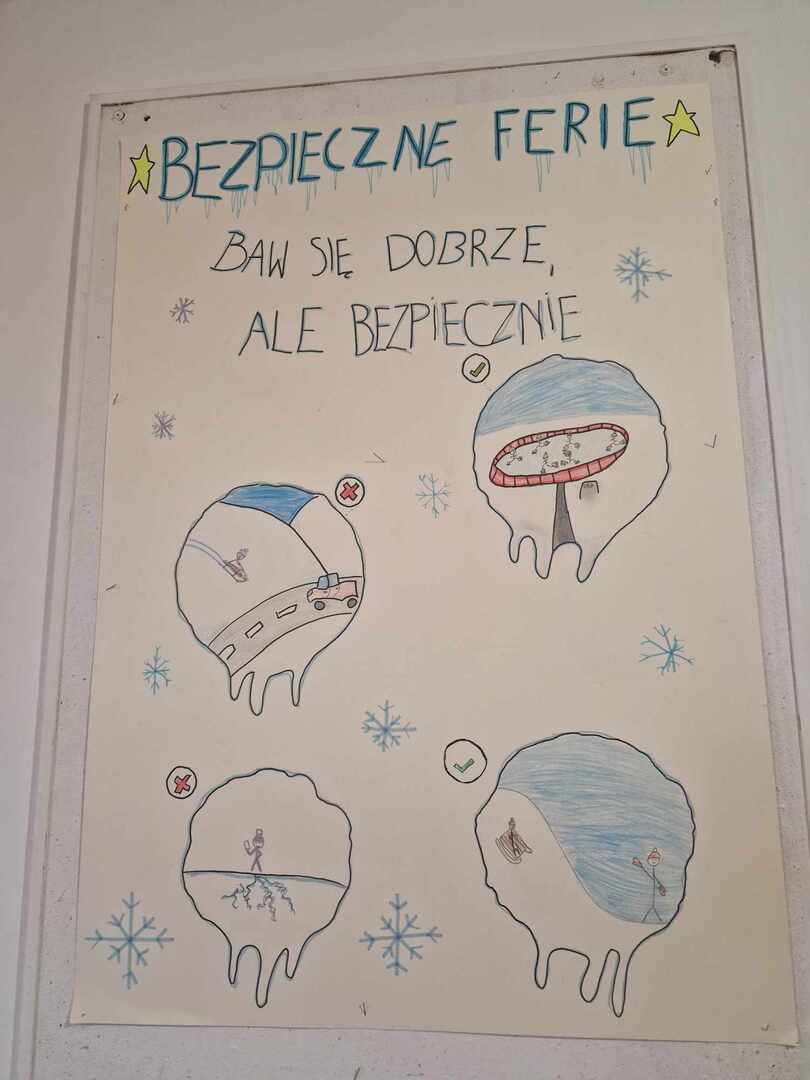 BEZPIECZNE FERIE
BAW SIĘ DOBRZE,
ALE BEZPIECZNIE